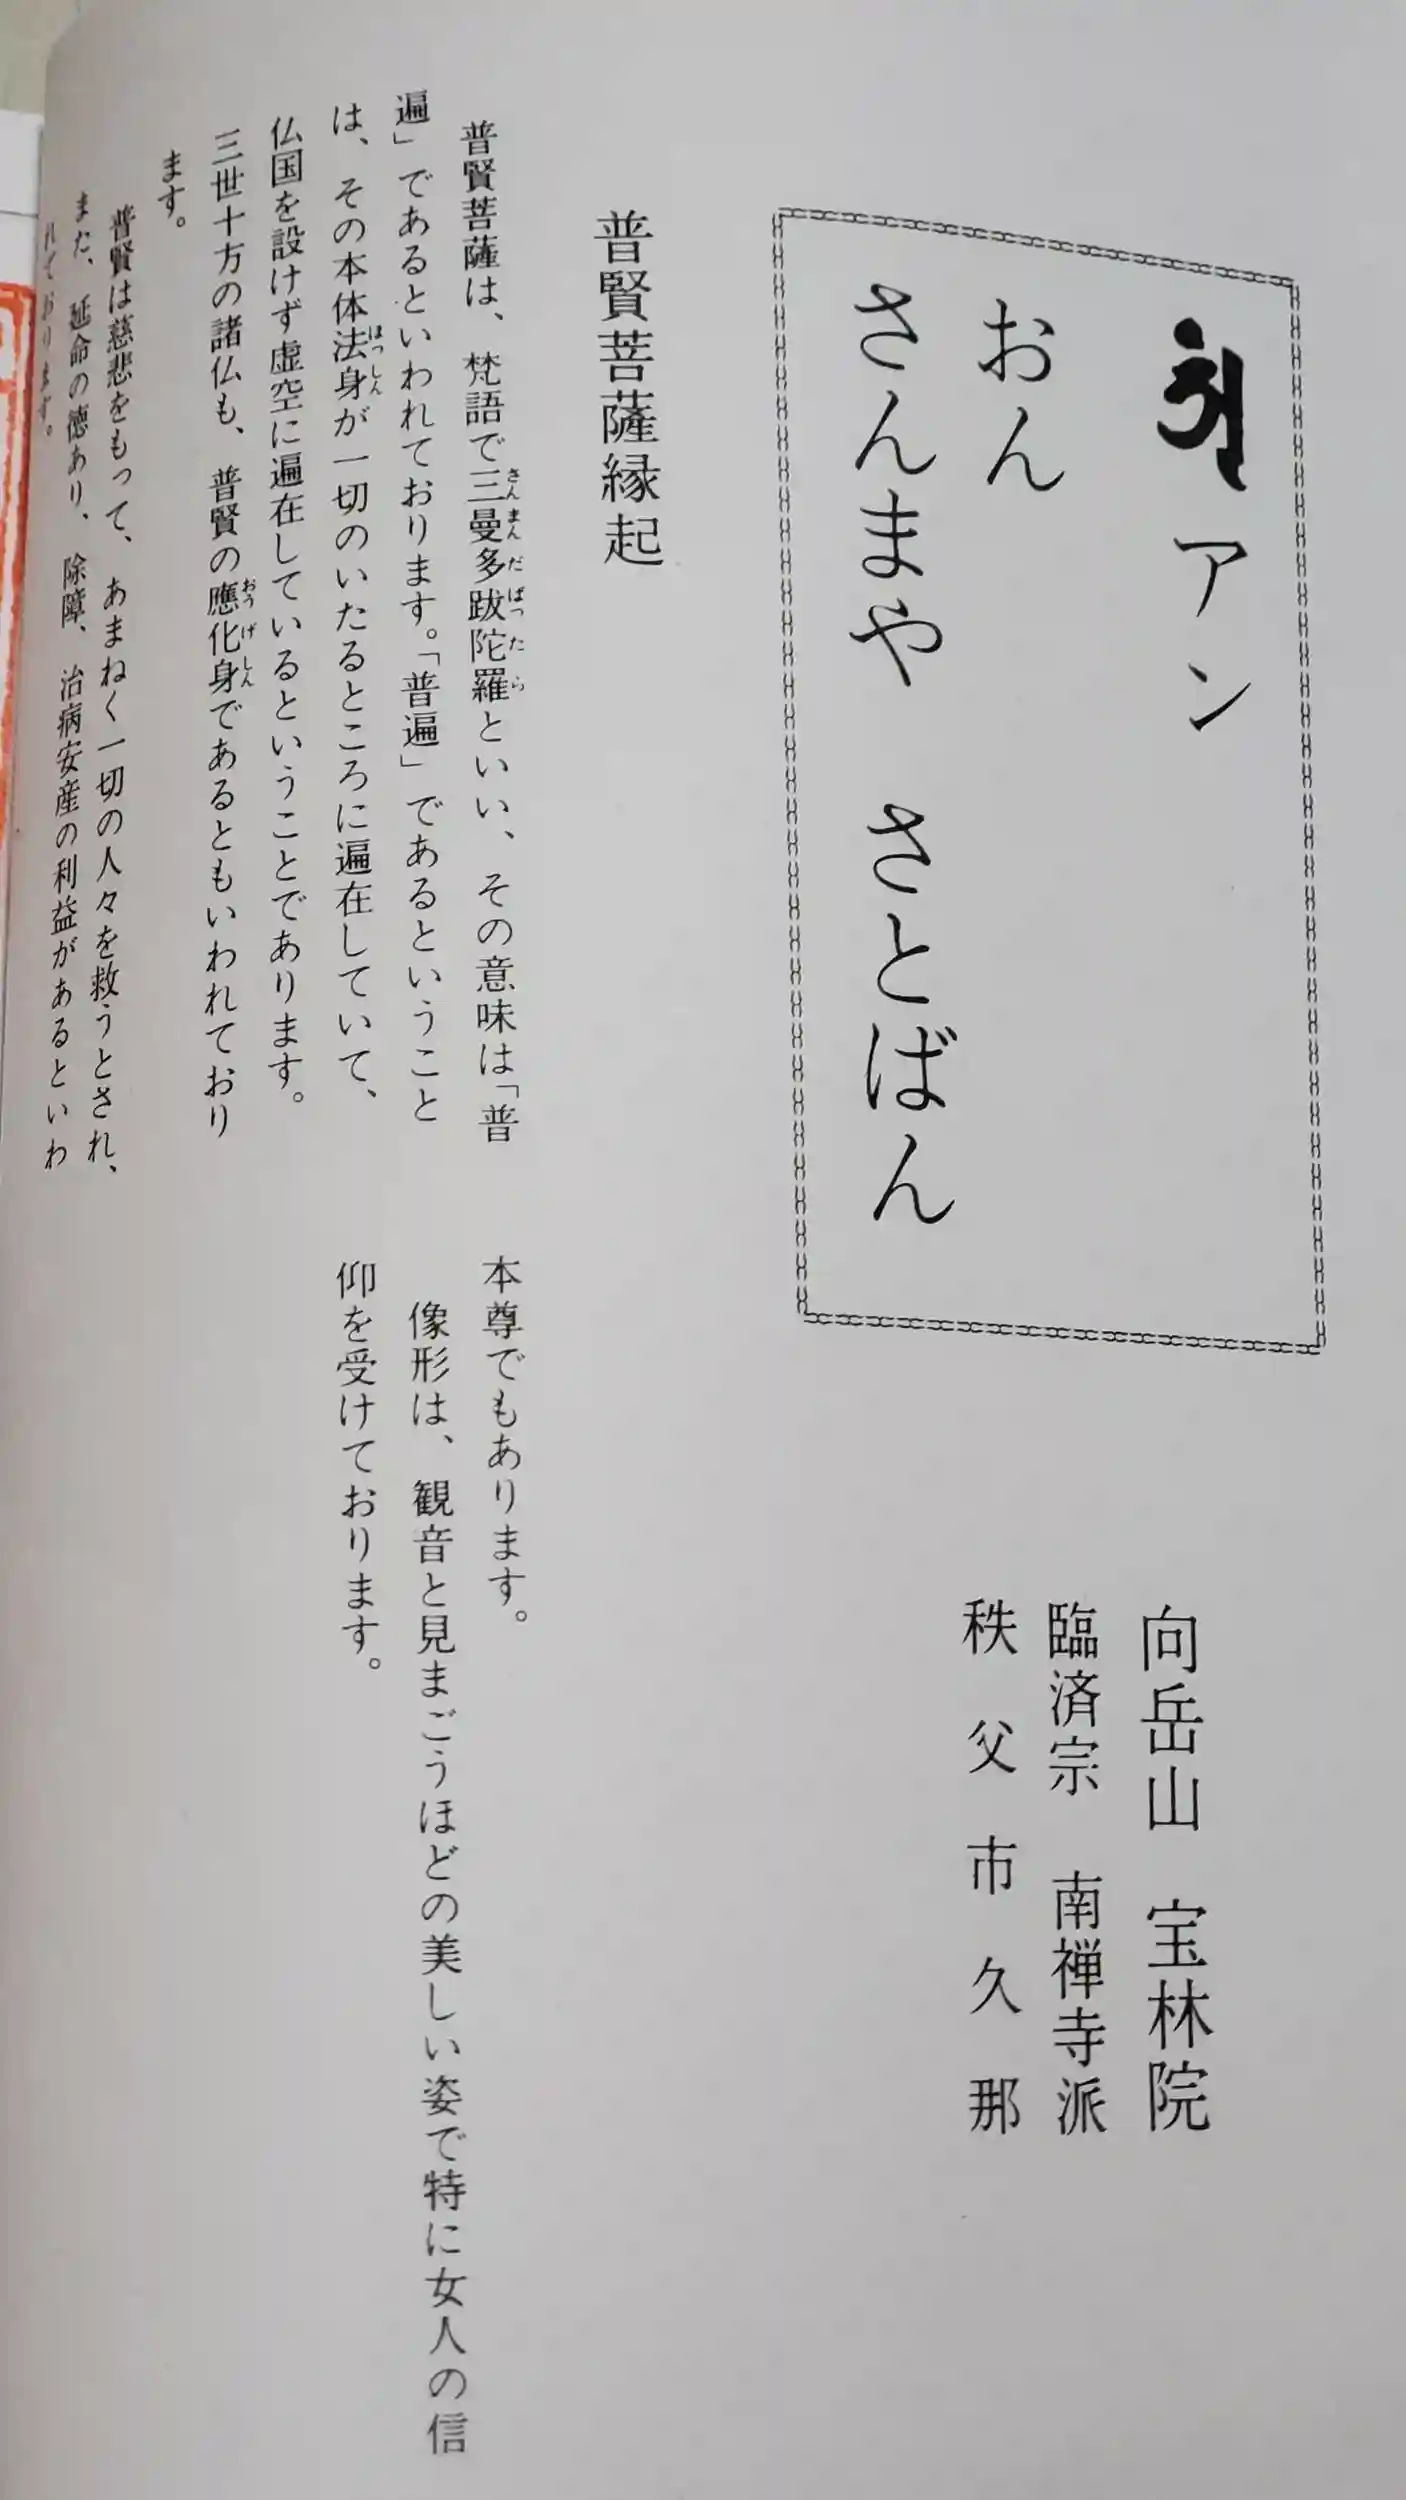 アン
おん
さんまや　さとばん
向岳山　宝林院
臨済宗　南禅寺派
秩父市久那
普賢菩薩縁起
普賢菩薩は、梵語で三曼多跋陀羅といい、その意味は「普
遍」であるといわれております。「普遍」であるということ
は、その本体法身が一切のいたるところに遍在していて、
仏国を設けず虚空に遍在しているということであります。
三世十方の諸仏も、普賢の應化身であるともいわれており
ます。
普賢は慈悲をもって、あまねく一切の人々を救うとされ、
また、延命の徳あり、除障、治病安産の利益があるといわ
れております。
本尊でもあります。
像形は、観音と見まごうほどの美しい姿で特に女人の信
仰を受けております。